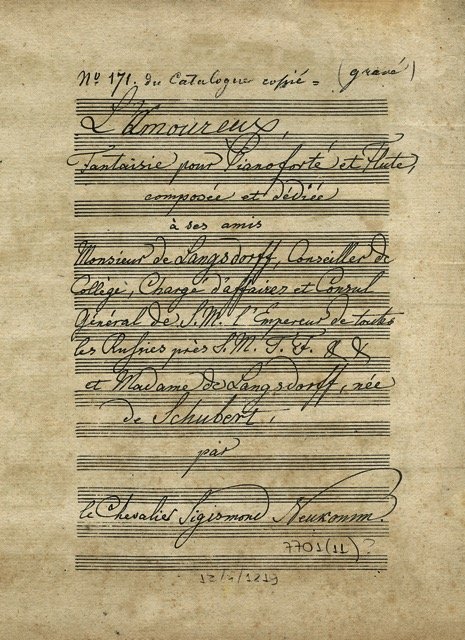 Nº 171. du Catalogue copié = (gravé)
L'Amoureux,
Fantaisie pour Pianoforté et Flute,
composée et dédiée
à ses amis
Monsieur de Langsdorff, Conseiller de
Collège, Chargé d'affaires et Consul
Général de S. M. l'Empereur de toutes
les Russies près S. M. T. F. & &
et Madame de Langsdorff, née
de Schubert,
par
le Chevalier Sigismond Neukomm.
7701(11)?